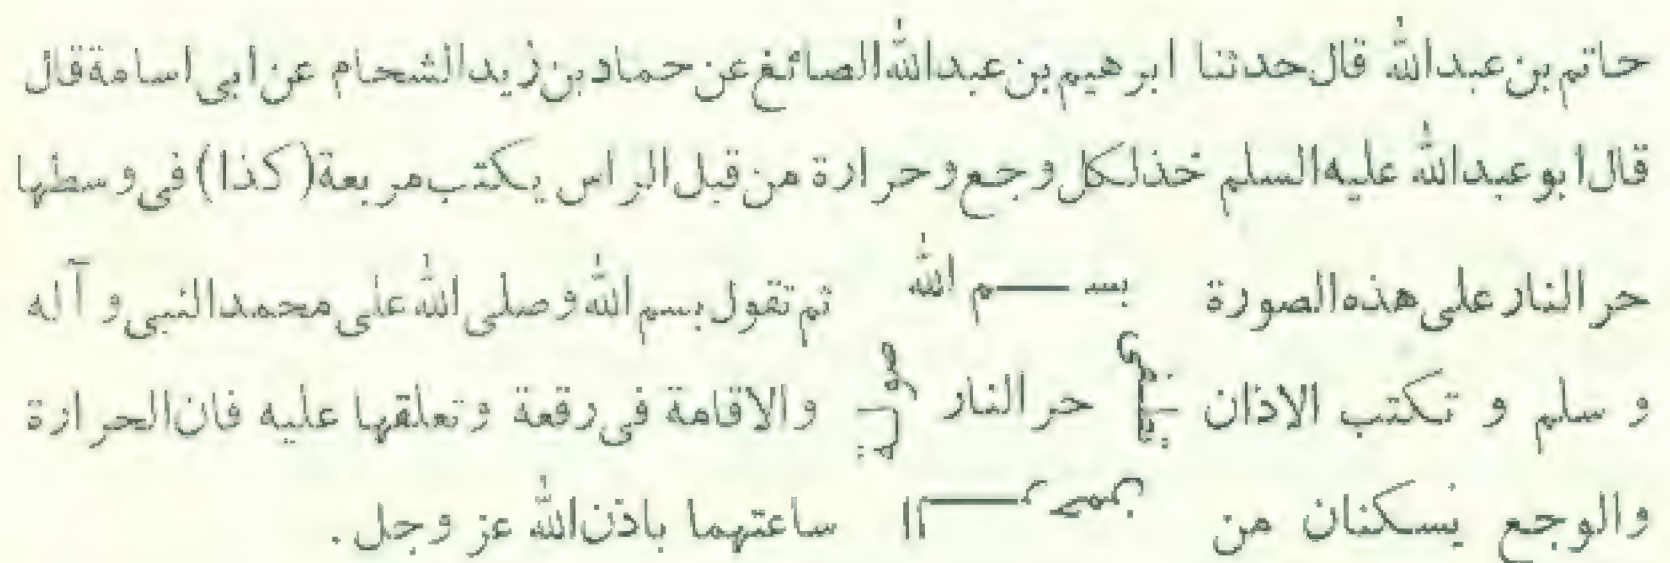 حاتم بن عبدالله قال حدثنا ابرهيم بن عبدالله الصائغ عن حماد بن زيد الشحام عن ابى اسامة قال
قال ابو عبدالله عليه السلم خذ لكل وجع وحرارة من قبل الراس يكتب مربعة (كذا) فى وسطها
حر النار على هذه الصورة بســـم الله ثم تقول بسم الله وصلى الله على محمد النبى و آله
و سلم و تكتب الاذان حر النار والاقامة فى رقعة وتعلقها عليه فان الحرارة
والوجع يسكنان من ساعتهما باذن الله عز وجل .